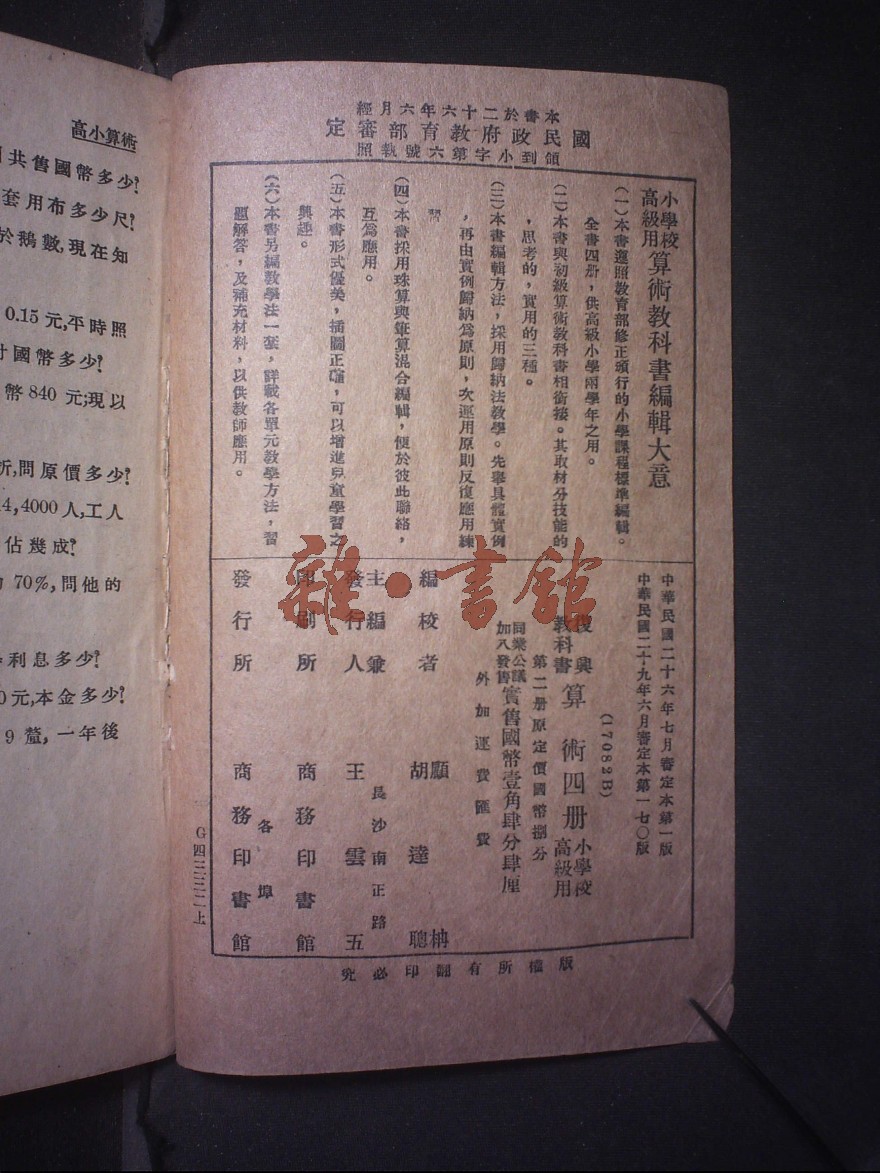 高小算術
共售國幣多少?
套用布多少尺?
於鵝數,現在知
0.15元,平時照
國幣多少?
幣840元;現以
折,問原價多少?
4,4000人,工人
佔幾成?
70%,問他的
利息多少?
0元,本金多少?
9釐,一年後
本書於二十六年六月經
國民政府教育部審定
領到小字第六號執照
小學校高級用算術教科書編輯大意
(一)本書遵照教育部修正頒行的小學課程標準編輯。
全書四册,供高級小學兩學年之用。
(二)本書與初級算術教科書相銜接。其取材分技能的
,思考的,實用的三種。
(三)本書編輯方法,採用歸納法教學。先舉具體實例
,再由實例歸納為原則,次運用原則反復應用練
習
(四)本書採用珠算與筆算混合編輯,便於彼此聯絡,
互為應用。
(五)本書形式優美,插圖正確,可以增進兒童學習之
興趣。
(六)本書另編教學法一套,詳載各單元教學方法,習
題解答,及補充材料,以供教師應用。
中華民國二十六年七月審定本第一版
中華民國二十九年六月審定本第一七〇版
(17082B)
復興教科書 算術四册 小學校高級用
第二册原定價國幣捌分
同業公議加八發售實售國幣壹角肆分肆厘
外加運費匯費
編校者 胡達聰 顧柟
主編兼發行人 王雲五
長沙南正路
印刷所 商務印書館
各埠
發行所 商務印書館
版權所有翻印必究
G四三三二上
雜·書館